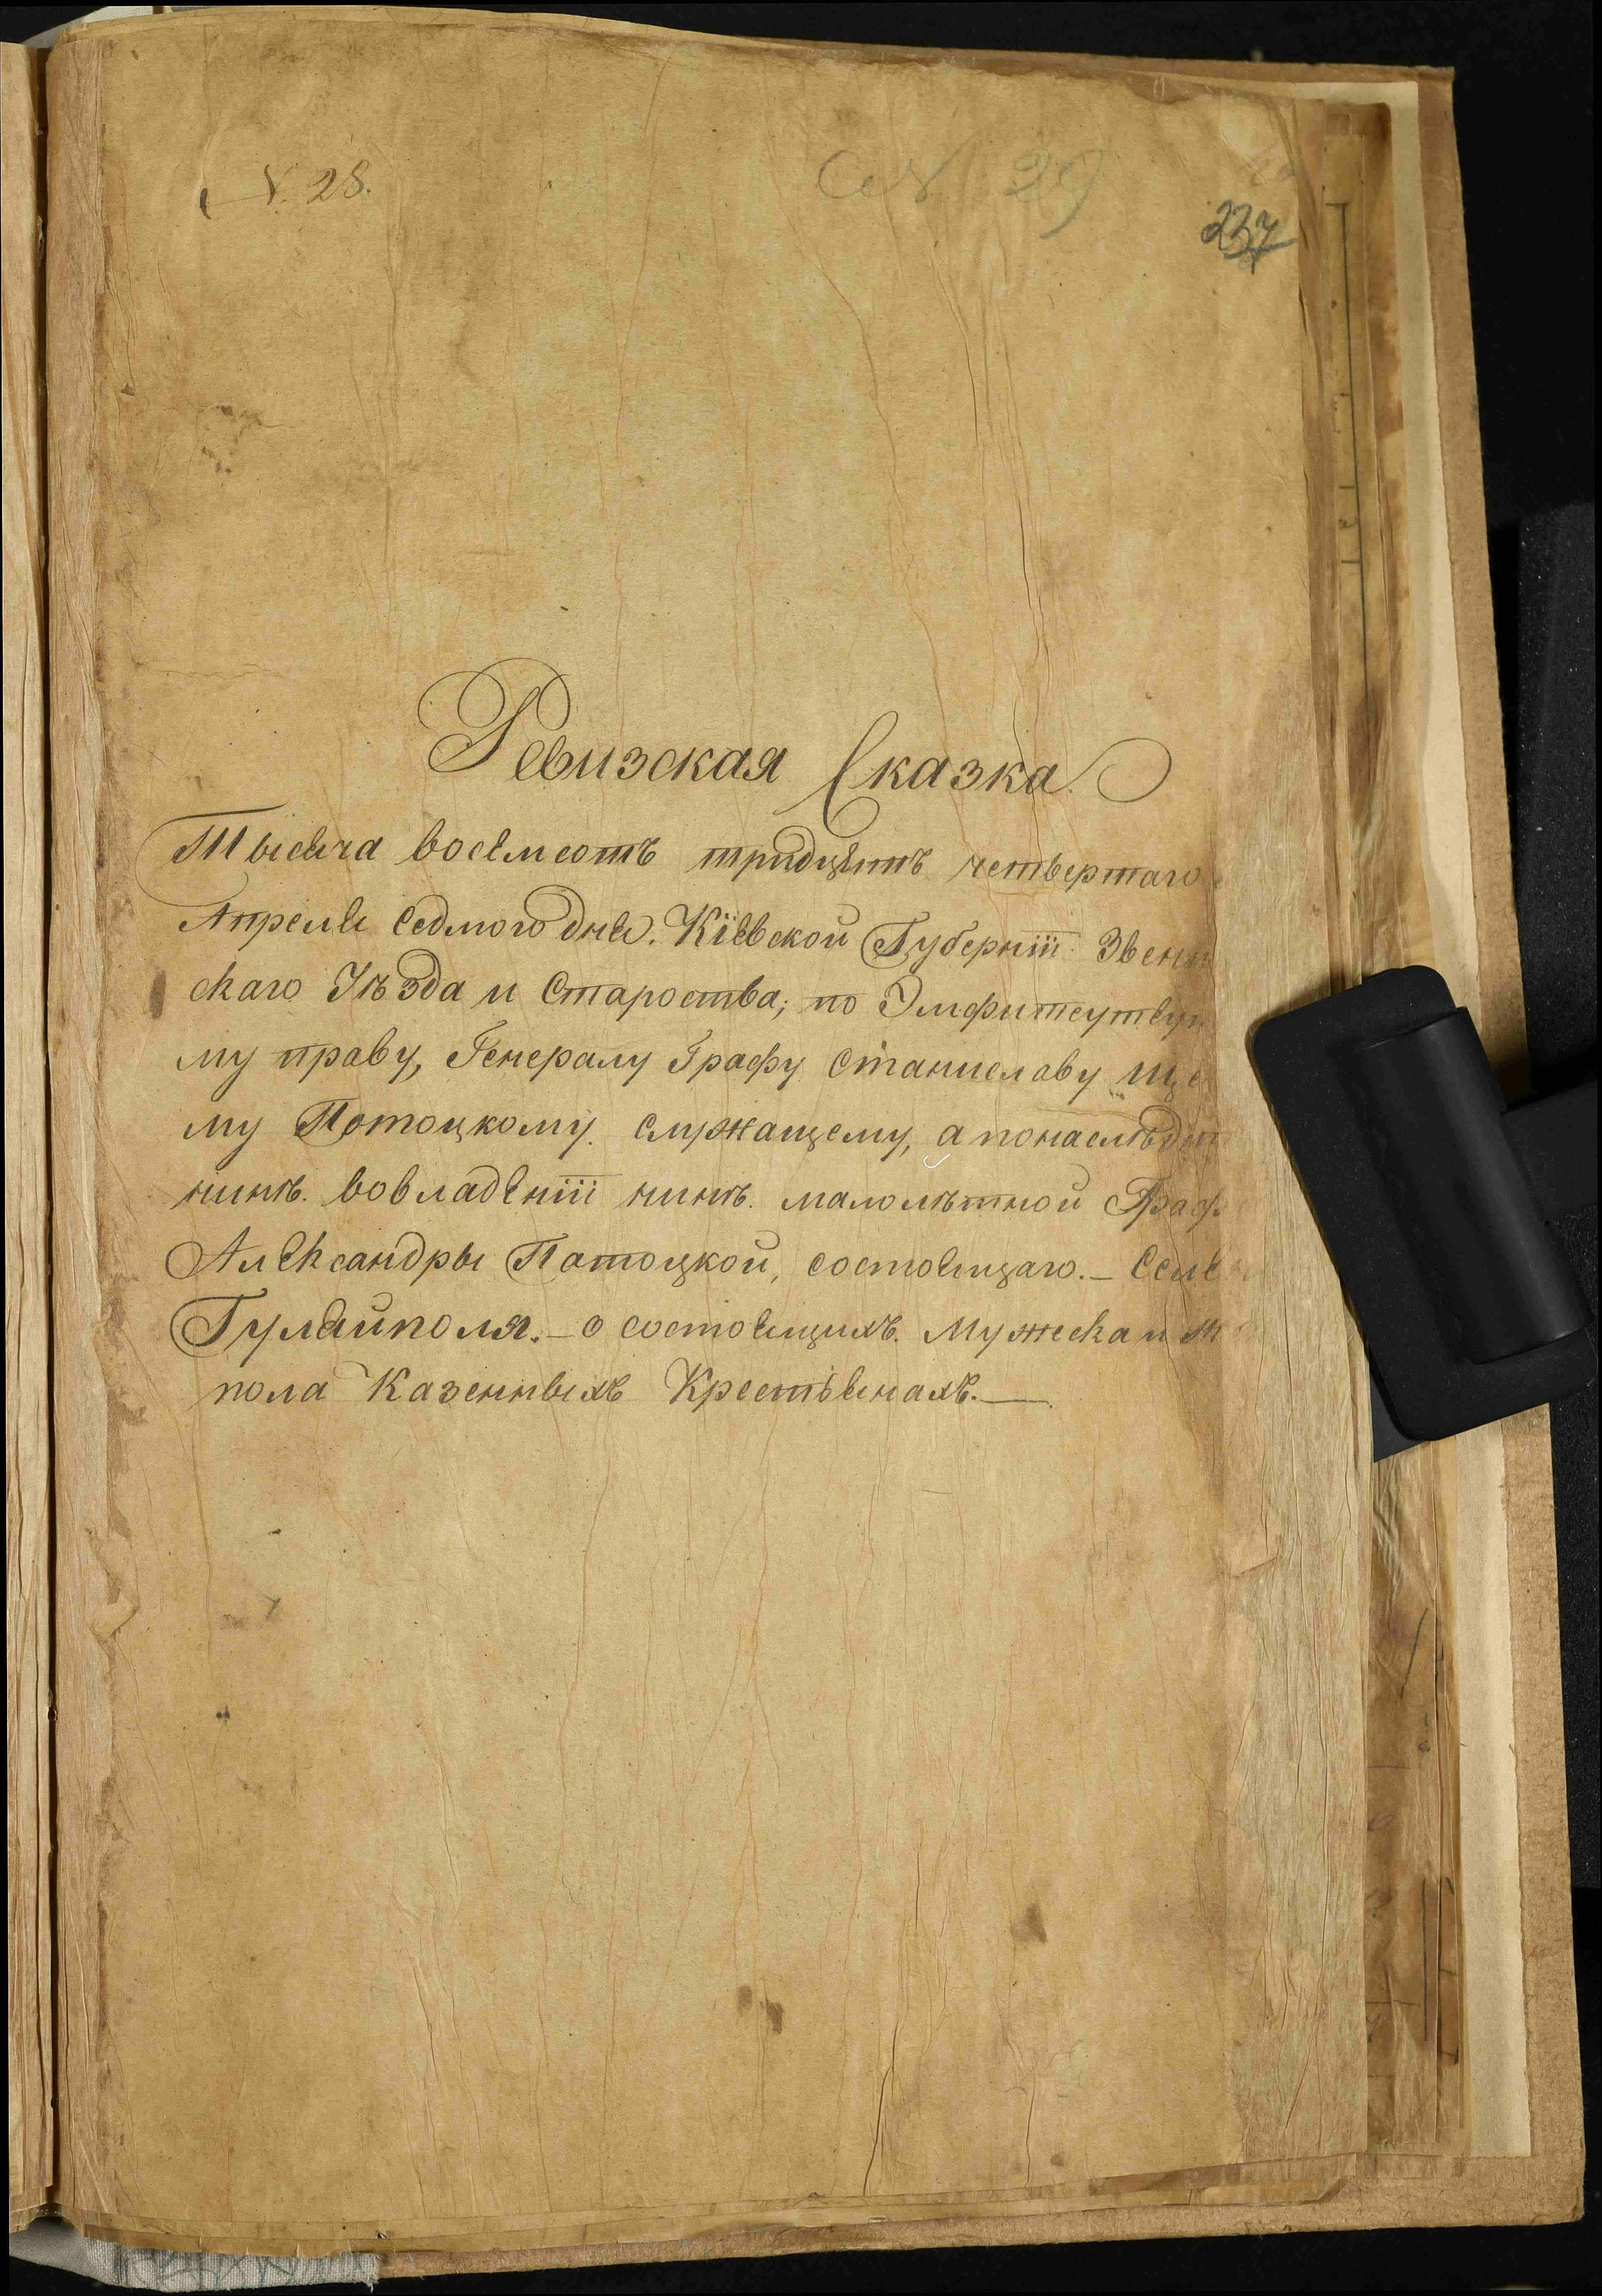 N. 28.
29
237
Ревизская Сказка.
Тысяча восемсотъ тридцять четвертаго
Апреля Седмого дня. Кіевской Губерніи Звени
скаго Уѣзда и Староства; по Эмфитеутву
му праву, Генералу Графу Станиславу Ще
му Потоцкому. служащему, а понаслѣд
нинѣ. вовладеніи нинѣ. малолѣтной Граф
Александры Потоцкой, состоящаго. — Селе
Гулайполя. — о состоящихъ. Мужеска и
пола Казенныхъ Крестьянахъ. —